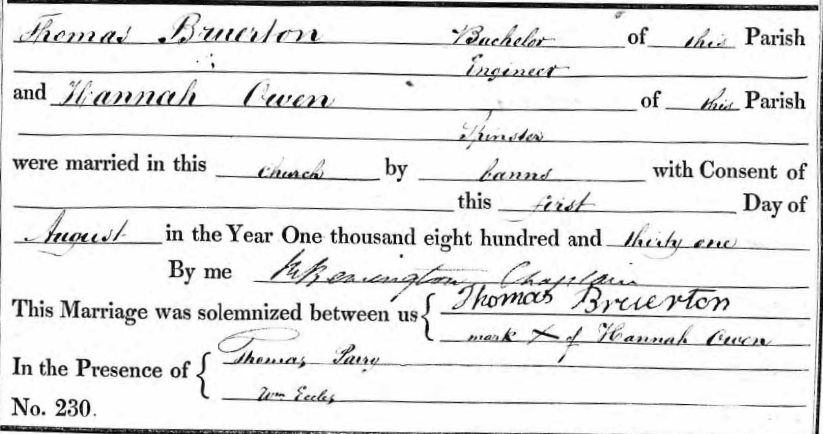 Thomas Bruerton Bachelor of this Parish
Engineer
and Hannah Owen of this Parish
Spinster
were married in this church by banns with Consent of
this first Day of
August in the Year One thousand eight hundred and thirty one
By me Chaplain
This Marriage was solemnized between us { Thomas Bruerton
mark X of Hannah Owen
In the Presence of { Thomas Parry
Wm Eccles
No. 230.